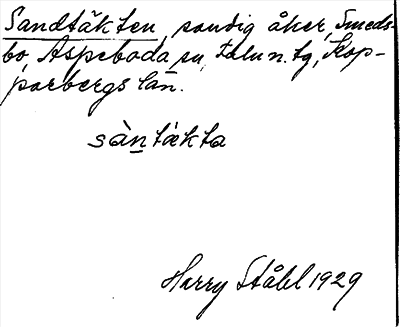 Sandtäkten, sandig åker, Smeds-
bo, Aspeboda sn, Falu n. tg, Kop-
parbergs län.
sàntækta
Harry Ståhl 1929